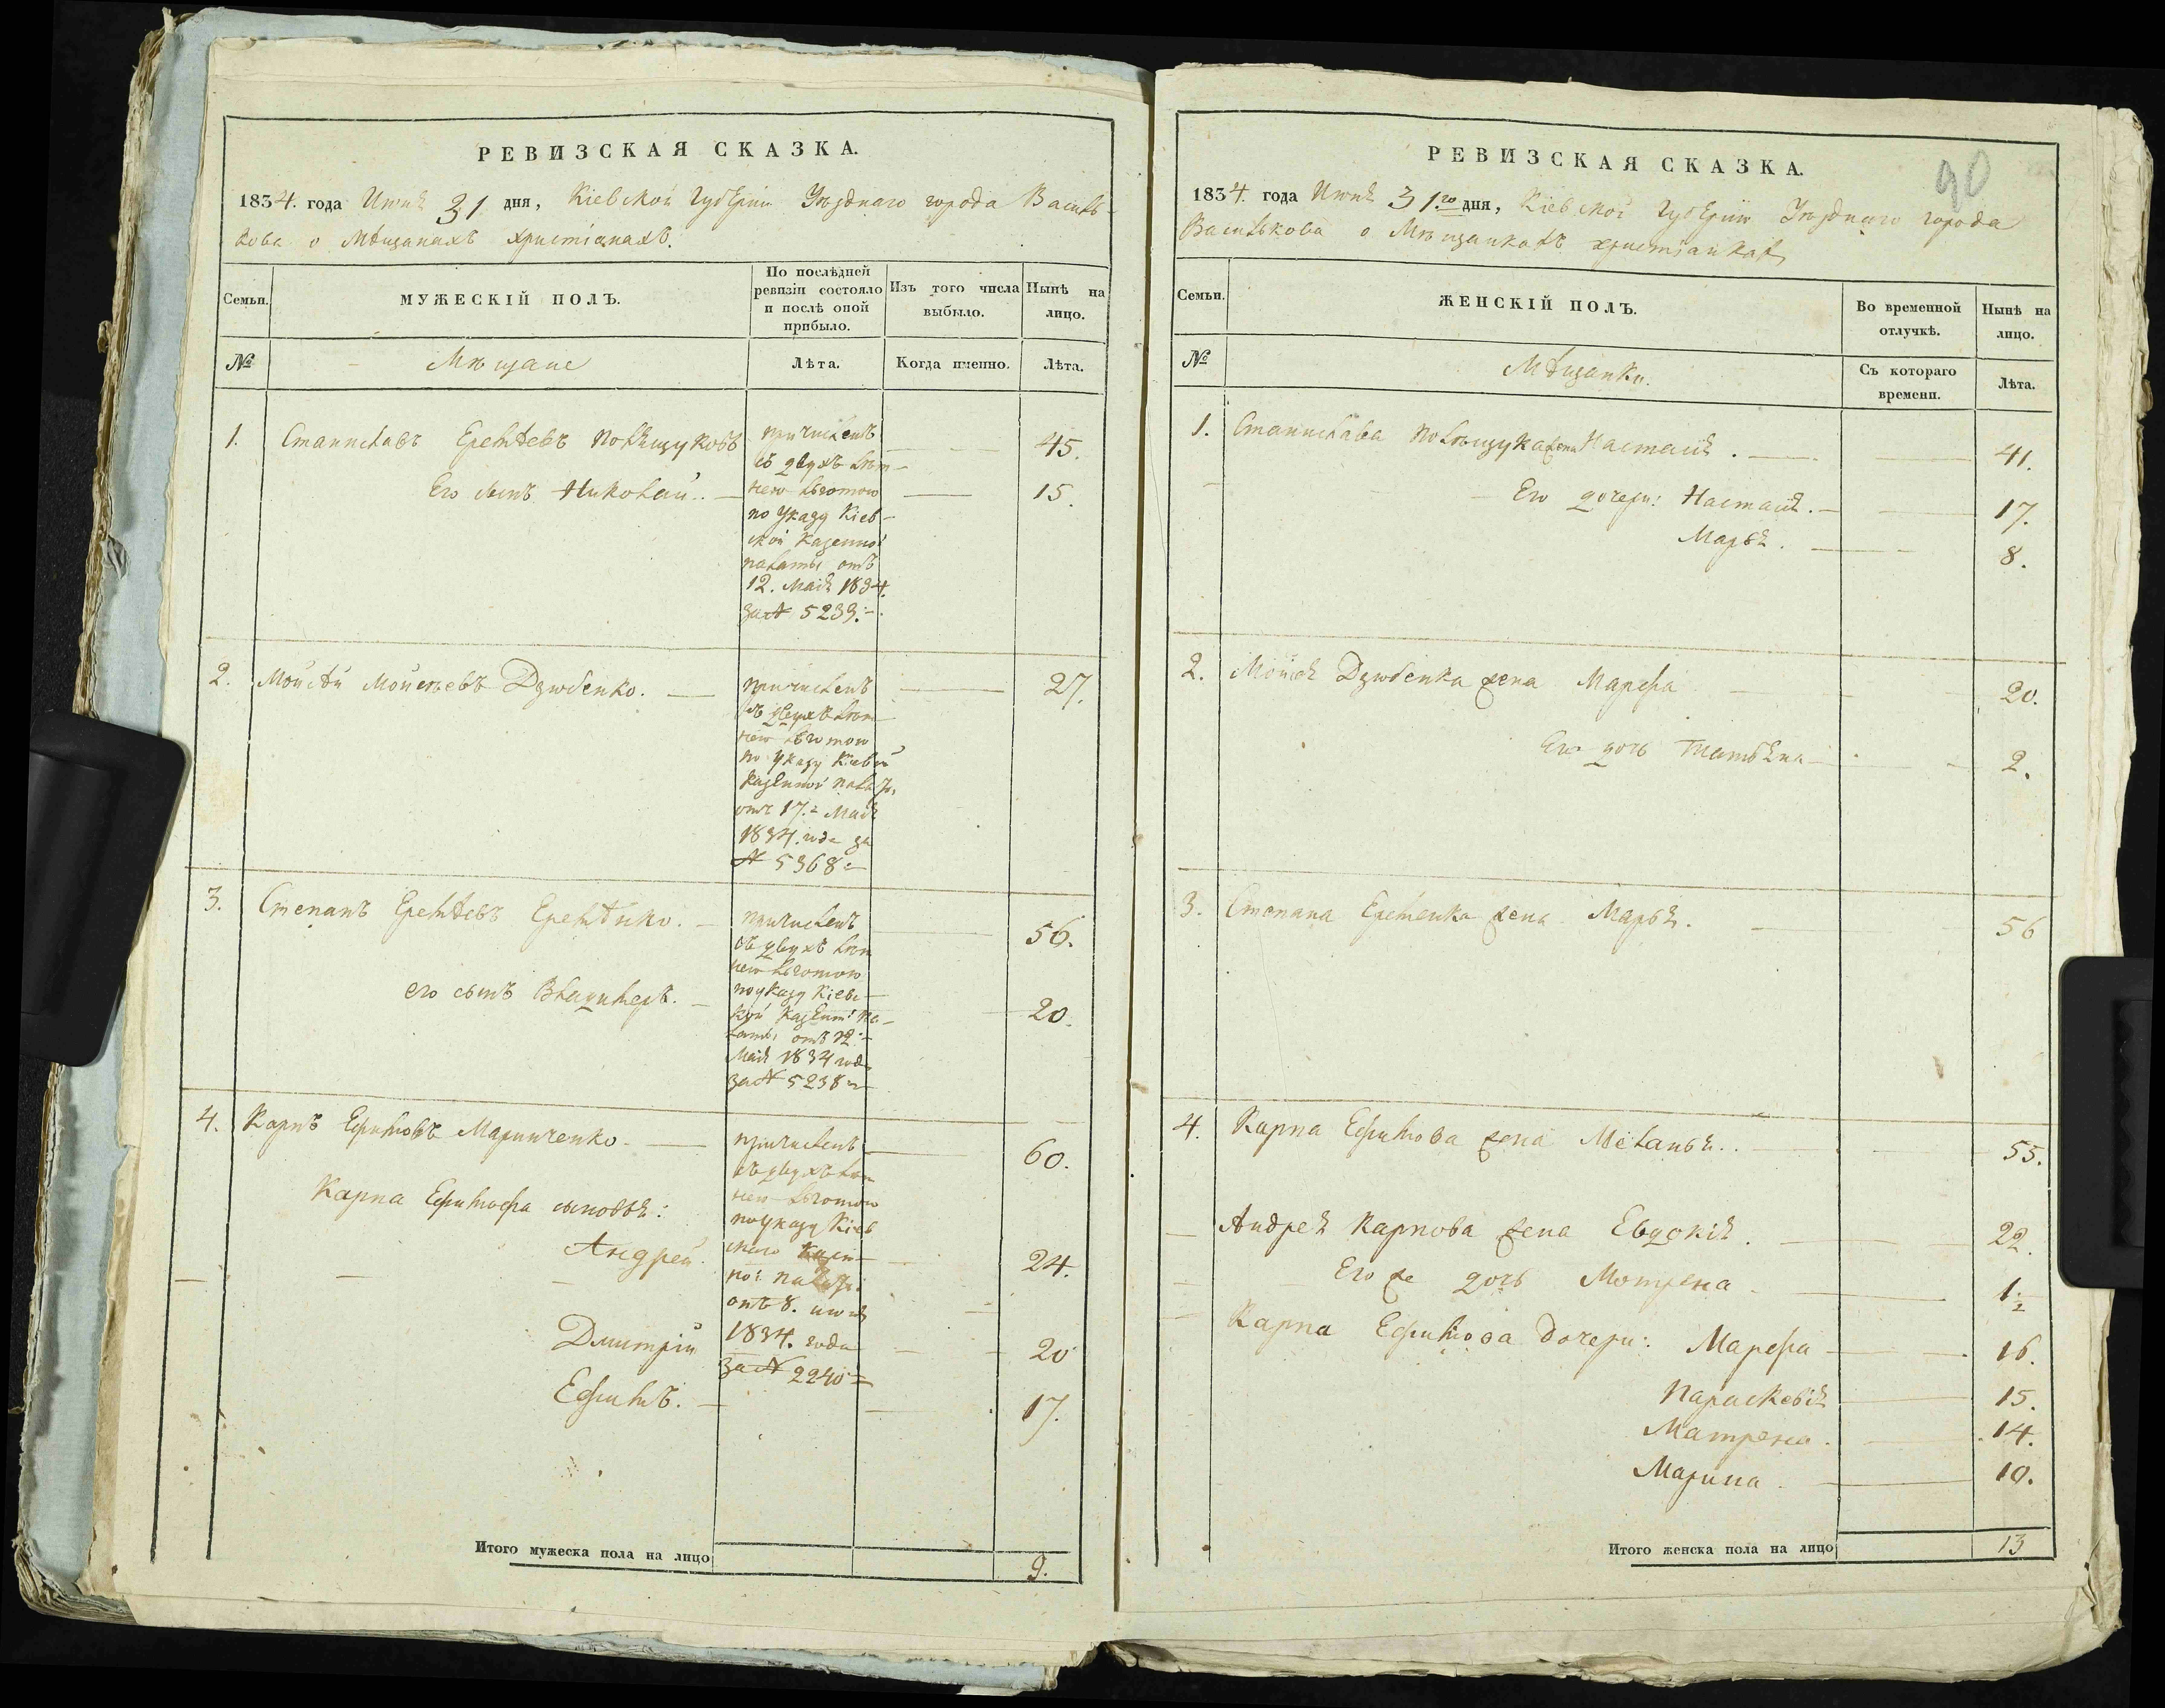 РЕВИЗСКАЯ СКАЗКА.
1834. года Июля 31 дня, Кіевской Губерніи Уѣзднаго города Василь-
кова о Мѣщанахъ христіанахъ.
Семьи.
МУЖЕСКІЙ ПОЛЪ.
По послѣдней ревизіи состояло и послѣ оной прибыло.
Изъ того числа выбыло.
Нынѣ на лицо.
№
Мѣщане
Лѣта.
Когда именно.
Лѣта.
1. Станиславъ Еремѣевъ Полѣщуковъ 45.
Его сынъ Николай.. 15.
причисленъ
съ двухъ лѣт-
нею льготою
по Указу Кіев-
ской Казенной
палаты отъ
12. Мая 1834.
за № 5239.
2. Мойсѣй Мойсѣевъ Дзюбенко. 27.
причисленъ
съ двухъ лѣт-
нею льготою
по указу Кіевой
Казенной палаты
отъ 17. Мая
1834. года за
№ 5368
3. Степанъ Еремѣевъ Еремѣнко. 56.
его сынъ Владимеръ. 20.
причисленъ
съ двухъ лѣт
нею льготою
по указу Кіевс-
кой Казенной Па-
латы отъ 12
Мая 1834 года
за № 5238
4. Карпъ Ефимовъ Маринченко. 60.
Карпа Ефимофа сыновья:
Андрей. 24.
Дмитрій 20
Ефимъ. 17.
причисленъ
съ двухъ лѣт
нею льготою
по Указу Кіев
ской Казен
ной Палаты
отъ 8. июня
1834. года
за № 2240
Итого мужеска пола на лицо 9.
90
РЕВИЗСКАЯ СКАЗКА.
1834. года Июля 31.го дня, Кіевской Губерніи Уѣзднаго города
Василькова о Мѣщанкахъ христіанках
Семьи.
ЖЕНСКІЙ ПОЛЪ.
Во временной отлучкѣ.
Нынѣ на лицо.
№
Мѣщанки.
Съ котораго времени.
Лѣта.
1. Станислава Полѣщука жена Настасія. 41.
Его дочери: Настасія. 17.
Марья. 8.
2. Мойсея Дзюбенка жена Марефа 20.
Его дочь Татьяна 2.
3. Степана Еременка жена Марья. 56
4. Карпа Ефимова жена Меланья.. 55.
Андрея Карпова жена Евдокія. 22.
Его же дочь Мотрена 1½
Карпа Ефимова дочери: Марефа 16.
Параскевія 15.
Матрена. 14.
Марина. 10.
Итого женска пола на лицо 13